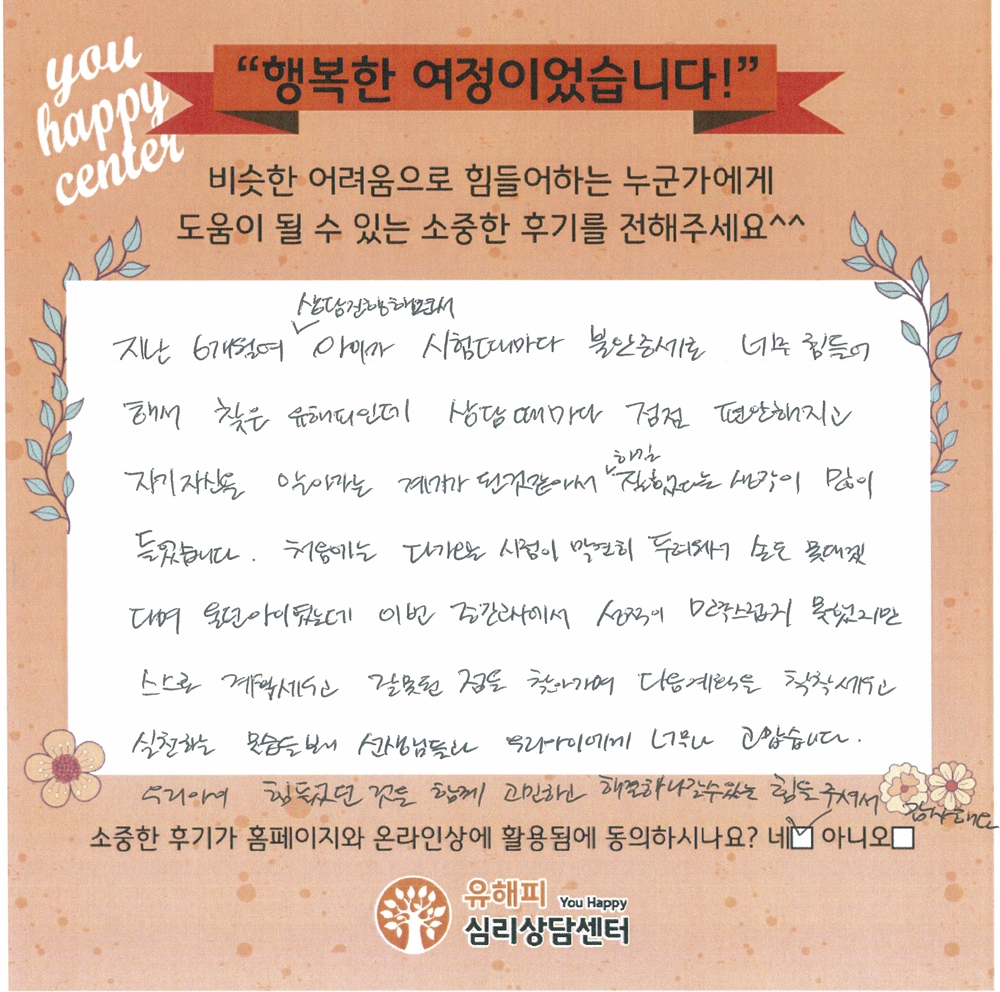 you
happy
center
“행복한 여정이었습니다!”
비슷한 어려움으로 힘들어하는 누군가에게
도움이 될 수 있는 소중한 후기를 전해주세요^^
상담진행하면서
지난 6개월여 아이가 시험때마다 불안증세로 너무 힘들어
해서 찾은 유해피인데 상담때마다 점점 편안해지고
하길
자기자신을 알아가는 계기가 된것같아서 잘했다는 생각이 많이
들었습니다. 처음에는 다가오는 시험이 막연히 두려워서 손도 못대겠
다며 울던아이였는데 이번 중간고사에서 성적이 만족스럽지 못했지만
스스로 계획세우고 잘못된 점을 찾아가며 다음계획을 착착세우고
실천하는 모습을보니 선생님들과 우리아이에게 너무나 고맙습니다.
우리아이 힘들었던 것을 함께 고민하고 해결해나갈수있는 힘을 주셔서
감사해요
소중한 후기가 홈페이지와 온라인상에 활용됨에 동의하시나요? 네 아니오
유해피 You Happy
심리상담센터